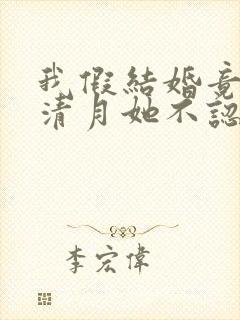 我假結婚竟
清月她不認
李宏偉